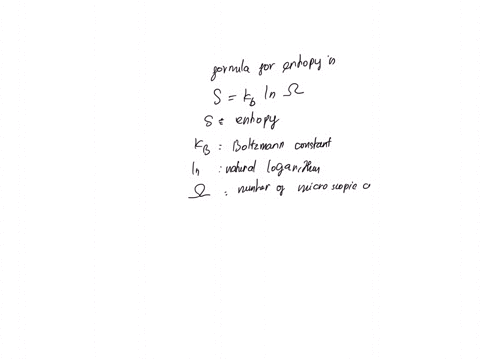 formula for entropy is
S = k_B ln Ω
S = entropy
k_B : Boltzmann constant
ln : natural logarithm
Ω : number of microscopic c